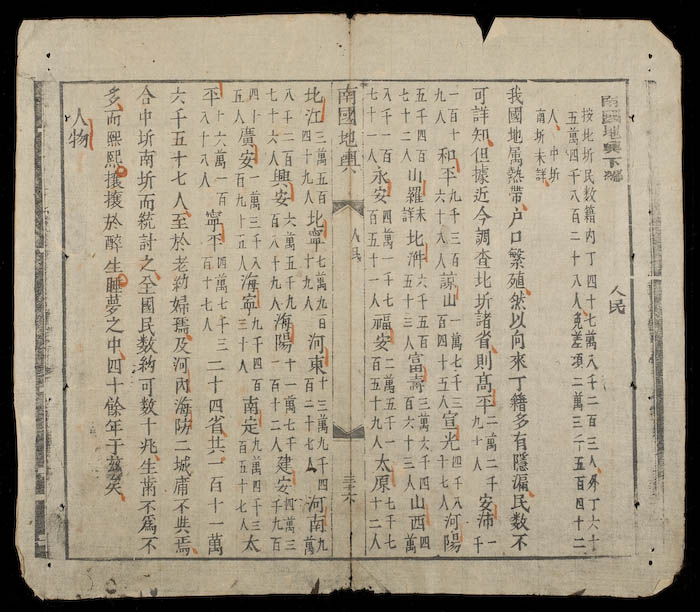 南國地輿下編　人民
按北圻民数籍内丁四十七萬八千二百三人外丁六十
五萬四千八百二十八人免差項二萬三千五百四十二
人中圻
南圻未詳
我國地属熱帶户口繁殖然以向來丁籍多有隱漏民数不
可詳知但據近今調查北圻諸省則高平二萬二千九十人安沛一千
一百十九人和平九千三百六十八人諒山一萬七千三百四十五人宣光四千八百十七人河陽
五千四百七十二人山羅未詳北泮六千五百五十三人富壽三萬六千四百六十三人山西四萬
八千一百七十一人永安四萬一千七百五十一人福安二萬五千一百五十九人太原七千七百十二人
南國地輿　人民　三十六
北江三萬五百四十九人北寧七萬九百十九人河東十三萬九千四百二十七人河南九萬
八千二百七十六人興安六萬五千九百八十九人海陽十一萬七千一百十二人建安四萬三千九百
四十五人廣安一萬三千八百九十五人海寧九千四百三十人南定九萬四千三百五十七人太
平十六萬一百八十八人寧平四萬七千三百十七人二十四省共一百十一萬
六千五十七人至於老幼婦孺及河内海防二城庸不與焉
合中圻南圻而統計之全國民数約可数十兆生齒不為不
多而熙熙攘攘於醉生睡夢之中四十餘年于茲矣
人物